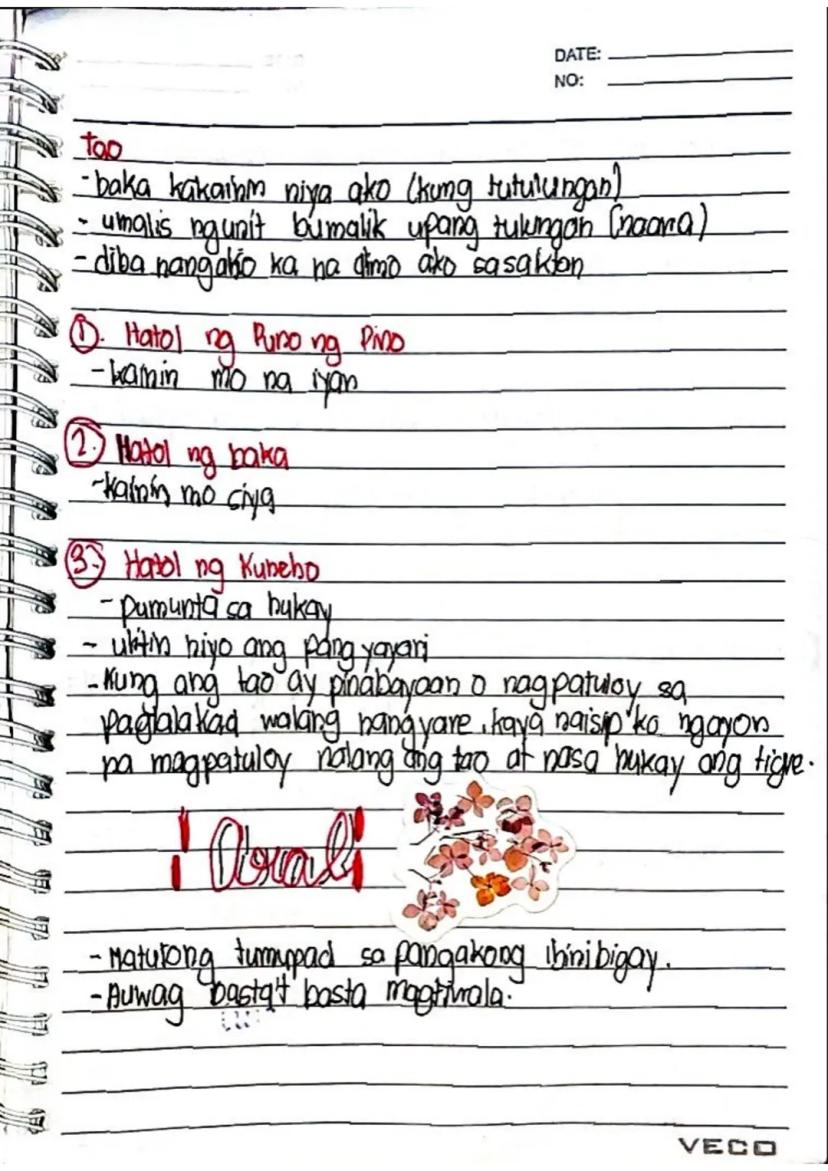 DATE:
NO:
tao
- baka kakainin niya ako (kung tutulungan)
- umalis ngunit bumalik upang tulungan (naawa)
- diba nangako ka na dimo ako sasaktan
1. Hatol ng Puno ng Pino
- kainin mo na iyan
2. Hatol ng baka
- kainin mo siya
3. Hatol ng Kuneho
- pumunta sa hukay
- ulitin niyo ang pangyayari
- Kung ang tao ay pinabayaan o nagpatuloy sa
paglalakad walang nangyare, kaya naisip ko ngayon
na magpatuloy nalang ang tao at nasa hukay ang tigre.
Aral
- Matutong tumupad sa pangakong ibinibigay.
- Huwag basta't basta magtiwala.
VECO